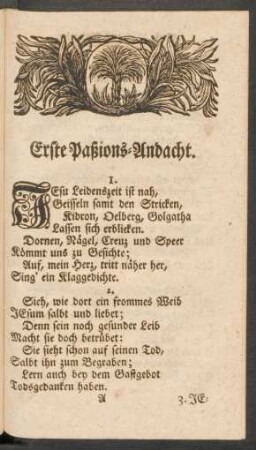 Erste Paßions-Andacht.
1.
JEsu Leidenszeit ist nah,
Geisseln samt den Stricken,
Kidron, Oelberg, Golgatha
Lassen sich erblicken.
Dornen, Nägel, Creuz und Speer
Kömmt uns zu Gesichte;
Auf, mein Herz, tritt näher her,
Sing' ein Klaggedichte.
2.
Sieh, wie dort ein frommes Weib
JEsum salbt und liebet;
Denn sein noch gesunder Leib
Macht sie doch betrübet:
Sie sieht schon auf seinen Tod,
Salbt ihn zum Begraben;
Lern auch bey dem Gastgebot
Todsgedanken haben.
A 3. JE-